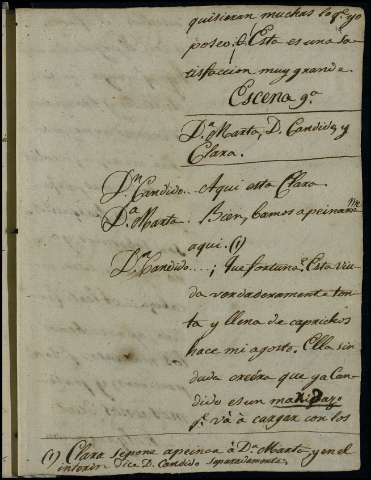 quisieran muchas lo q.e yo
poseo. Esta es una sa-
tisfaccion muy grande.
Escena 9.a
D.a Marta, D. Candido, y
Clara.
D.n Candido.. Aqui esta Clara
D.a Marta.. Bien, bamos a peinarme
aqui. (1)
D.n Candido....¡Que fortuna! Esta viu-
da verdaderamente ton-
ta y llena de caprichos
hace mi agosto. Ella sin
duda creera que ya Can-
dido es un maridazo
q.e và à cargar con los
(1) Clara se pone a peinar à D.a Marta, y en el
interin dice D. Candido separadamente.